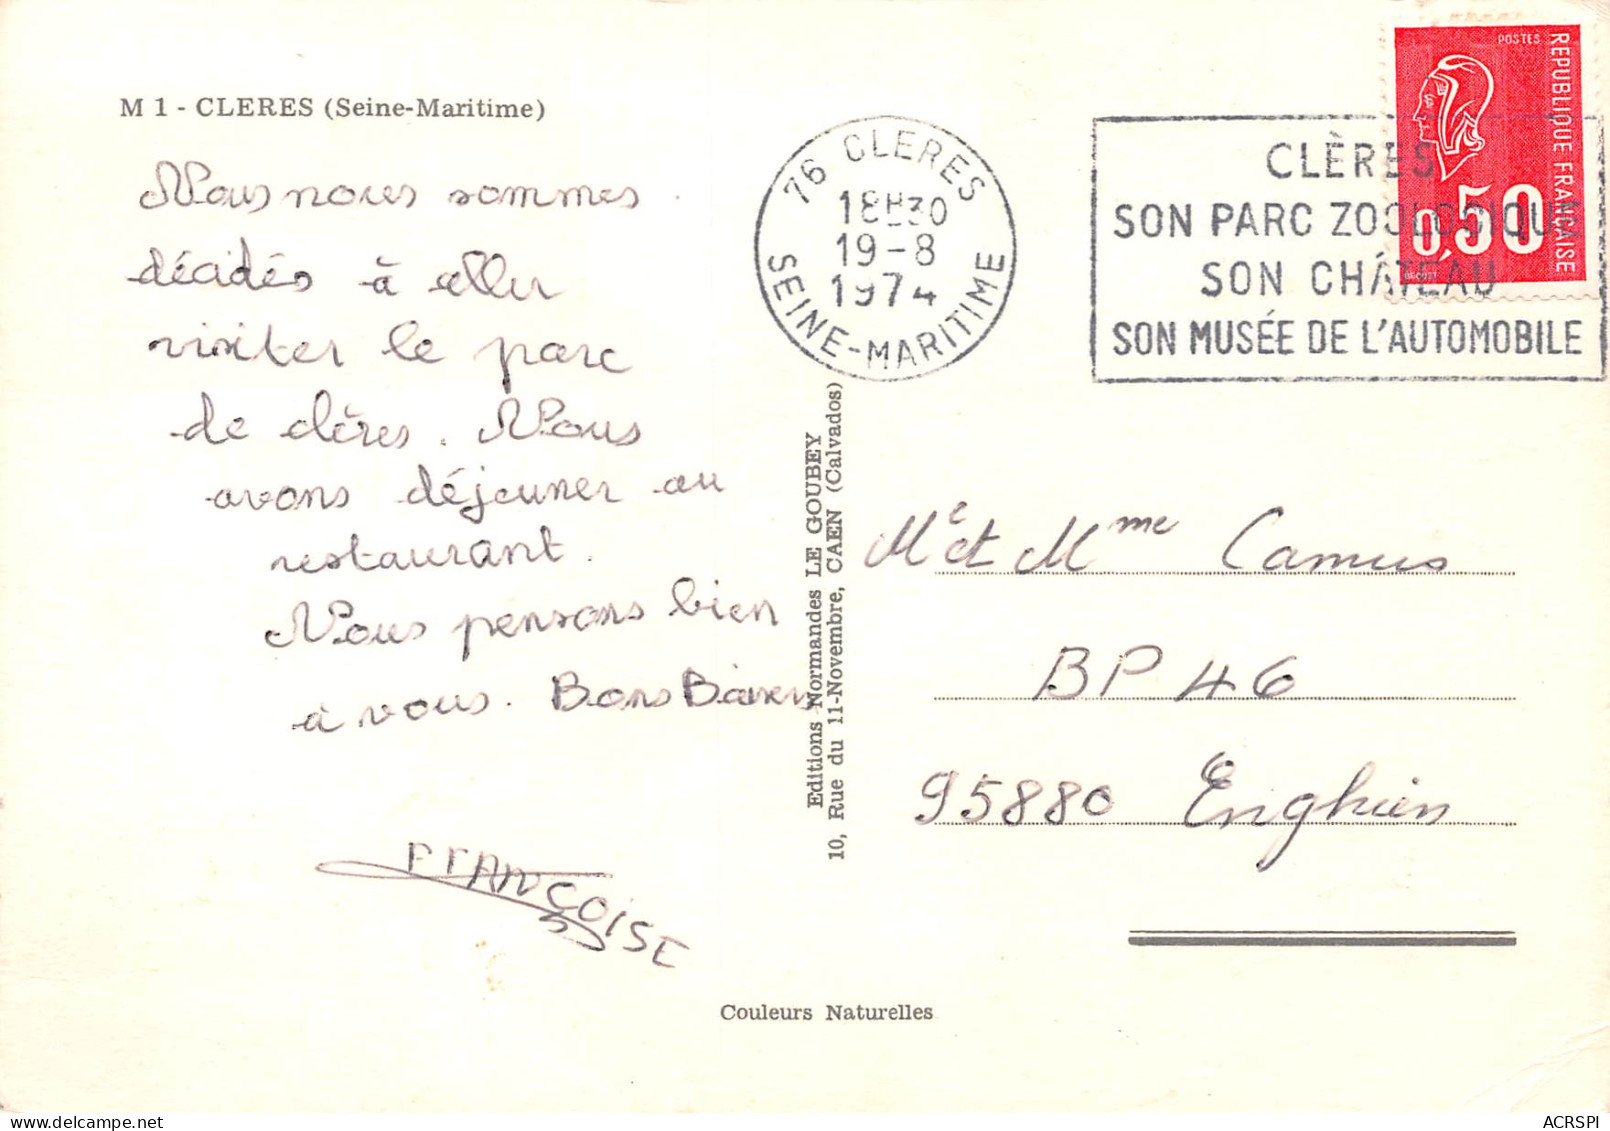 M 1 - CLERES (Seine-Maritime)
Nous nous sommes
décidés à aller
visiter le parc
de clères. Nous
avons déjeuner au
restaurant.
Nous pensons bien
à vous. Bons Baisers
FRANÇOISE
76 CLERES
18H30
19-8
1974
SEINE-MARITIME
CLÈRES
SON PARC ZOOLOGIQUE
SON CHÂTEAU
SON MUSÉE DE L'AUTOMOBILE
POSTES
REPUBLIQUE FRANÇAISE
0,50
BEQUET
Editions Normandes LE GOUBEY
10, Rue du 11-Novembre, CAEN (Calvados)
Mr et Mme Camus
BP 46
95880 Enghien
Couleurs Naturelles
ACRSPI